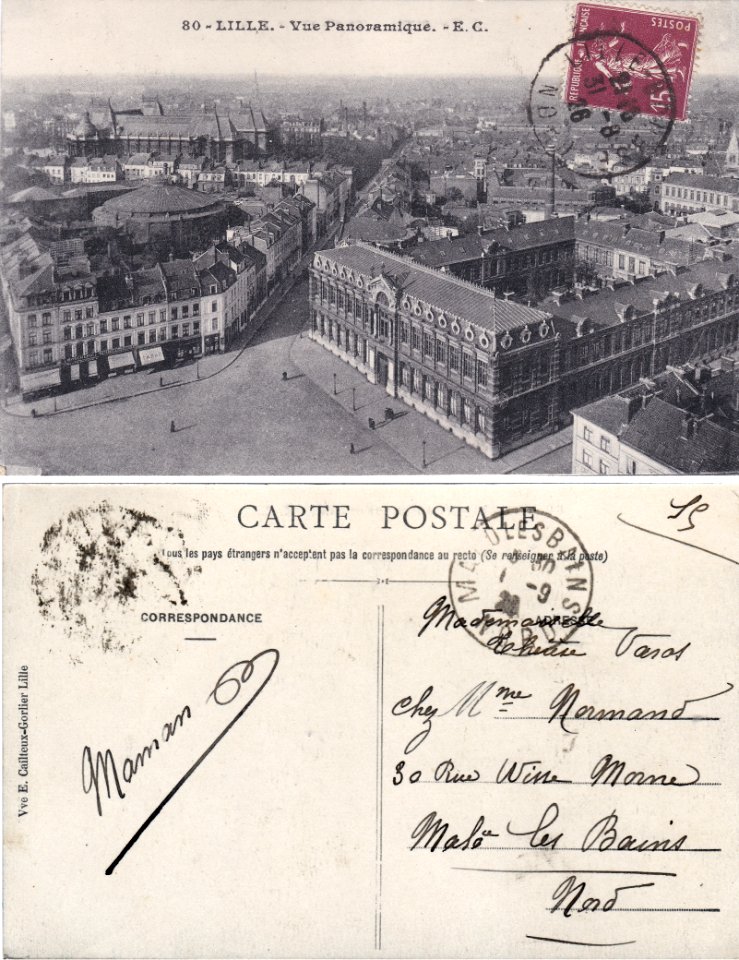 80 - LILLE. - Vue Panoramique. - E. C.
REPUBLIQUE FRANÇAISE
POSTES
15
LILLE
NORD
31 -8
26
CARTE POSTALE
Tous les pays étrangers n'acceptent pas la correspondance au recto (Se renseigner à la poste)
CORRESPONDANCE
ADRESSE
MALO LES BAINS
-9
15
Vve E. Cailteux-Gorlier Lille
Maman
Mademoiselle
Thérèse Varos
chez Mme Normand
30 Rue Witte Morne
Malo les Bains
Nord